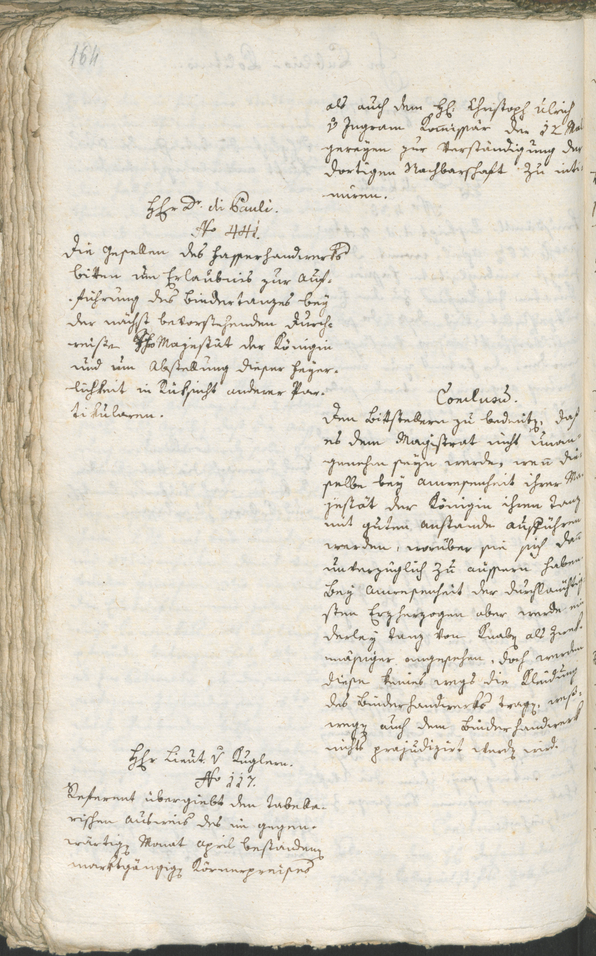 164
als auch dem H. Christoph Ulrich
v Ingram Komissär der 12 Ma
gereyen zur Verständigung der
dortigen Nachbarschaft zu inti
miren.
HEr Dr. di Pauli.
No 441.
Die Gesellen des Fasserhandwerks
bitten um Erlaubnis zur Auf-
führung des Bindertanzes bey
der nächst bevorstehenden Durch-
reise Ihro Majestät der Königin
und um Abstellung dieser Feyer-
lichkeit in Rüksicht anderer Par-
tikularen.
Conclusu.
Den Bittstellern zu bedeut, daß
es dem Magistrat nicht unan-
genehm seyn werde, wenn die
selbe bey Anwesenheit ihrer Ma
jestät der Königin ihren Tanz
mit guten Anstande aufführen
werden, worüber sie sich dan
unverzüglich zu äussern haben.
Bey Anwesenheit der durchlauchtig
sten Erzherzogen aber werde ein
derley Tanz von Knab als zwek
mäsiger angesehen, doch werden
diese keines wegs die Kleidung
des Binderhandwerks trag, wess-
weg auch dem Binderhandwerk
nichts präjudizirt werd wird.
HEr Lieut. v Kuglern.
No 117.
Referent übergiebt den tabela-
rischen Ausweis des im gegen-
wärtig Monat April bestanden
marktgängig Körnerpreises